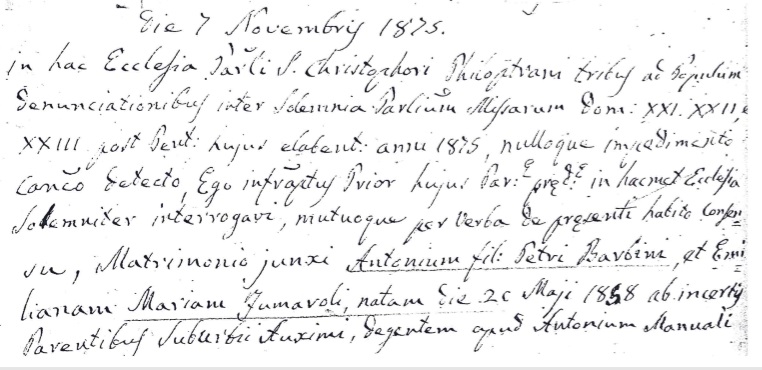 Die 7 Novembris 1875.
in hac Ecclesia Par̃li S. Christophori Philoptrani tribus ad Populum
denunciationibus inter Solemnia Parlium Missarum Dom: XXI. XXII, e
XXIII post Pent: hujus elabent: anni 1875, nulloque impedimento
Canc̃o detecto, Ego infrap̃tus Prior hujus Par: pręd: in hacmet Ecclesia
Solemniter interrogavi, mutuoque per Verba de pręsenti habito Consen=
su, Matrimonio junxi Antonium fil: Petri Barbini, et Emi=
lianam Mariam Jumaroli, natam die 20 Maji 1858 ab incertis
Parentibus Suburbii Auximi, degentem apud Antonium Manuali